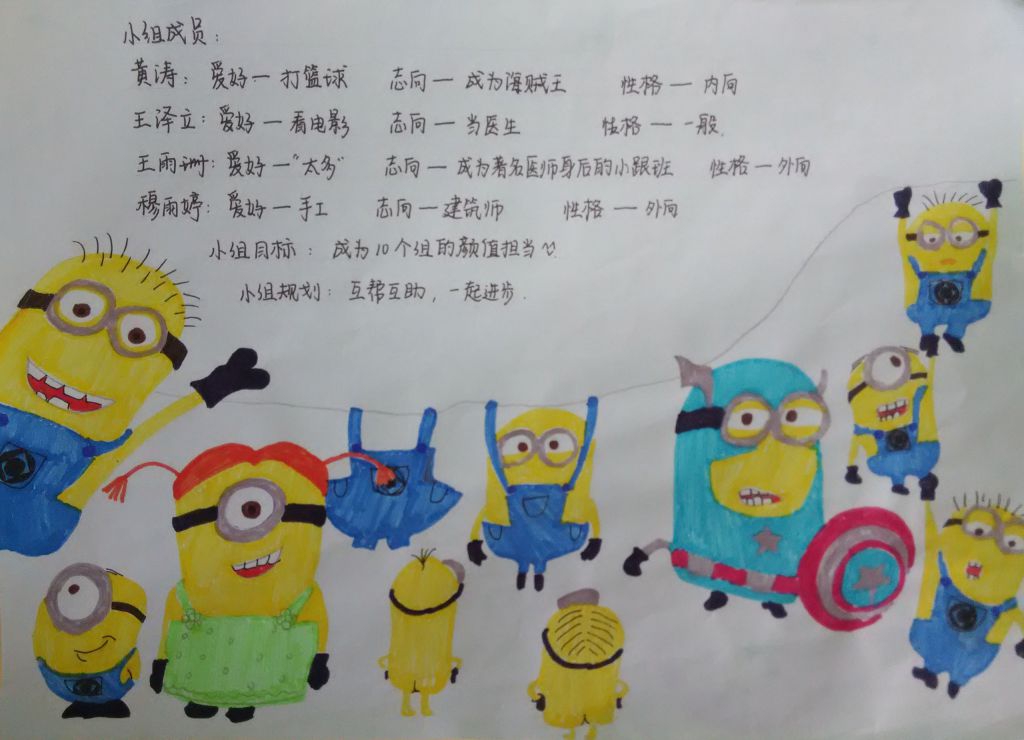 小组成员：
黄涛：爱好—打篮球 志向—成为海贼王 性格—内向
王泽立：爱好—看电影 志向—当医生 性格—一般.
王雨珊：爱好—“太多” 志向—成为著名医师身后的小跟班 性格—外向
穆雨婷：爱好—手工 志向—建筑师 性格—外向
小组目标：成为10个组的颜值担当
小组规划：互帮互助，一起进步.